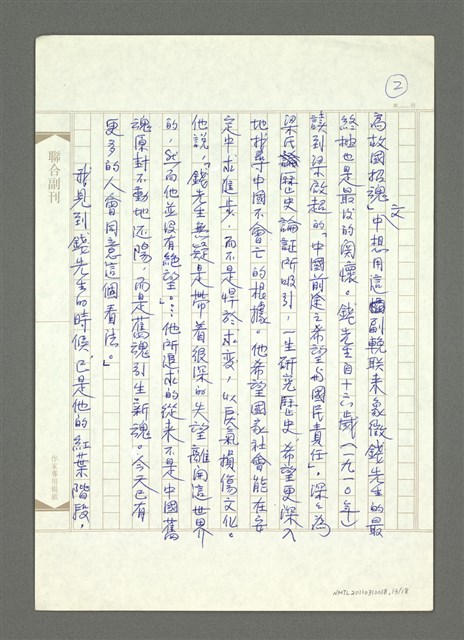 2
為故國招魂」文中想用這副輓联来象徵錢先生的最
終極也是最後的関懷。錢先生自十六歲(一九一○年)
讀到梁啟超的「中國前途之希望与國民責任」,深深為
梁氏歷史論証所吸引,一生研究歷史,希望更深入
地找尋中國不會亡的根據。他希望國家社會能在安
定中求進步,而不是悍於求变,以戾氣損傷文化。
他說,「錢先生無疑是帶着很深的失望離開這世界
的,然而他並没有絶望」…他所追求的從来不是中國舊
魂原封不動地还陽,而是舊魂引生新魂。今天已有
更多的人會同意這個看法。」
我見到錢先生的時候,已是他的紅葉階段,
聯合副刊
作家專用稿紙
NMTL20110310018,13/18